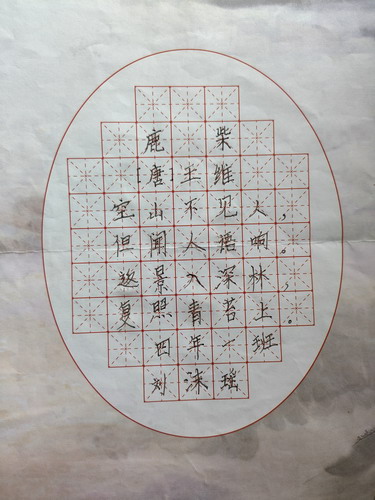 鹿柴
[唐]王维
空山不见人,
但闻人语响。
返景入深林,
复照青苔上。
四年一班
刘沫瑶